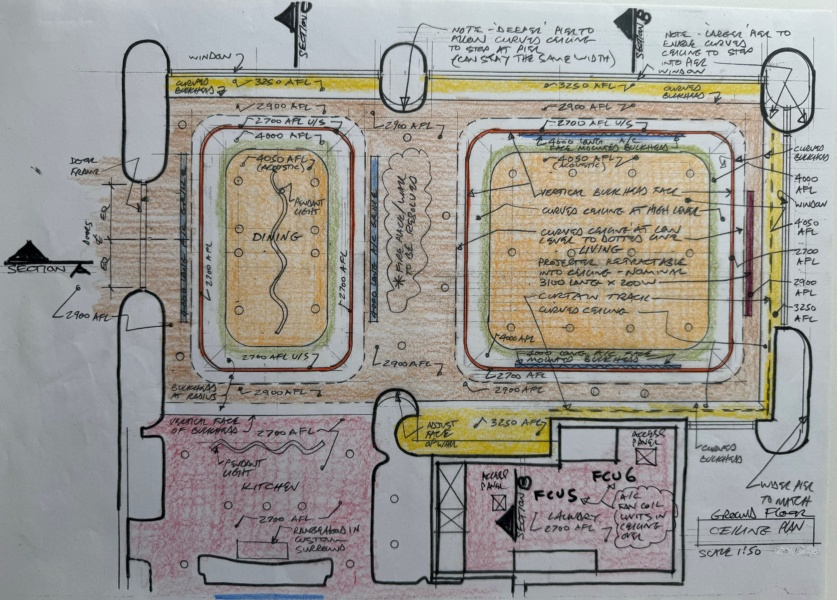 SECTION C
SECTION B
NOTE - 'DEEPER' PIER TO
ALLOW CURVED CEILING
TO STOP AT PIER
(CAN STAY THE SAME WIDTH)
NOTE - 'LARGER' PIER TO
ENABLE CURVED
CEILING TO STOP
INTO PIER
WINDOW
WINDOW
CURVED
BULKHEAD
3250 AFL
3250 AFL
CURVED
BULKHEAD
2900 AFL
2900 AFL
2700 AFL U/S
2900 AFL
2700 AFL U/S
4000 AFL
4000 LONG A/C
FACE MOUNTED BULKHEAD
4050 AFL
(ACOUSTIC)
4050 AFL
(ACOUSTIC)
CURVED
BULKHEAD
DOOR
FRAME
4000
AFL
PENDANT
LIGHT
VERTICAL BULKHEAD FACE
WINDOW
CURVED CEILING AT HIGH LEVEL
4050
AFL
DINING
CURVED CEILING AT LOW
LEVEL TO DOTTED LINE
LIVING
2700
AFL
EQ
EQ
SECTION A
PROJECTOR RETRACTABLE
INTO CEILING - NOMINAL
3100 LONG X 200W
2700 AFL
2700 AFL
2900
AFL
CURTAIN TRACK
CURVED CEILING
3250
AFL
2900 AFL
4000 AFL
2700 AFL U/S
2900 AFL
MOUNTED BULKHEAD
2700 AFL
2900 AFL
2900 AFL
BULKHEAD
AT RADIUS
VERTICAL FACE
OF BULKHEAD
2700 AFL
ADJUST
FACE
OF WALL
3250 AFL
ACCESS
PANEL
CURVED
BULKHEAD
PENDANT
LIGHT
KITCHEN
ACCESS
PANEL
FCU6
FCU5
A/C
FAN COIL
UNITS IN
CEILING
OVER
SECTION B
LAUNDRY
2700 AFL
2700 AFL
RANGEHOOD IN
CUSTOM
SURROUND
TO MATCH
GROUND FLOOR
CEILING PLAN
SCALE 1:50